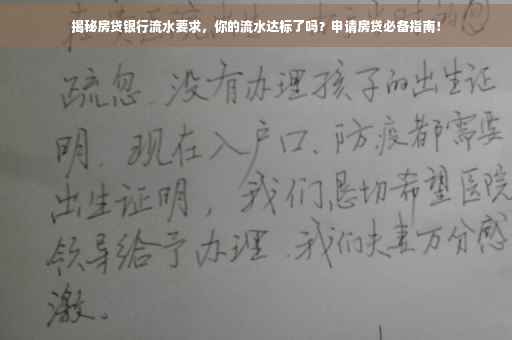 揭秘房贷银行流水要求，你的流水达标了吗？申请房贷必备指南！
疏忽、没有办理孩子的出生证
明、现在入户口、防疫都需要
出生证明，我们恳切希望医院
领导给予办理、我们夫妻万分感
激。